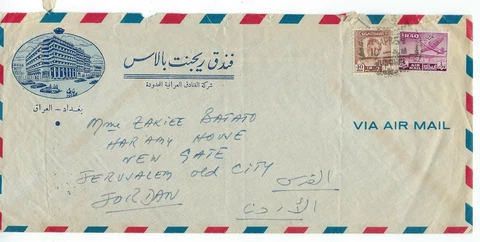 فندق ريجنت بالاس
شركة الفنادق العراقية المحدودة
بغداد - العراق
IRAQ
VIA AIR MAIL
Mme ZAKIEE BATATO
HARAMY HOUSE
NEW GATE
JERUSALEM old CITY
JORDAN
القدس
الأردن